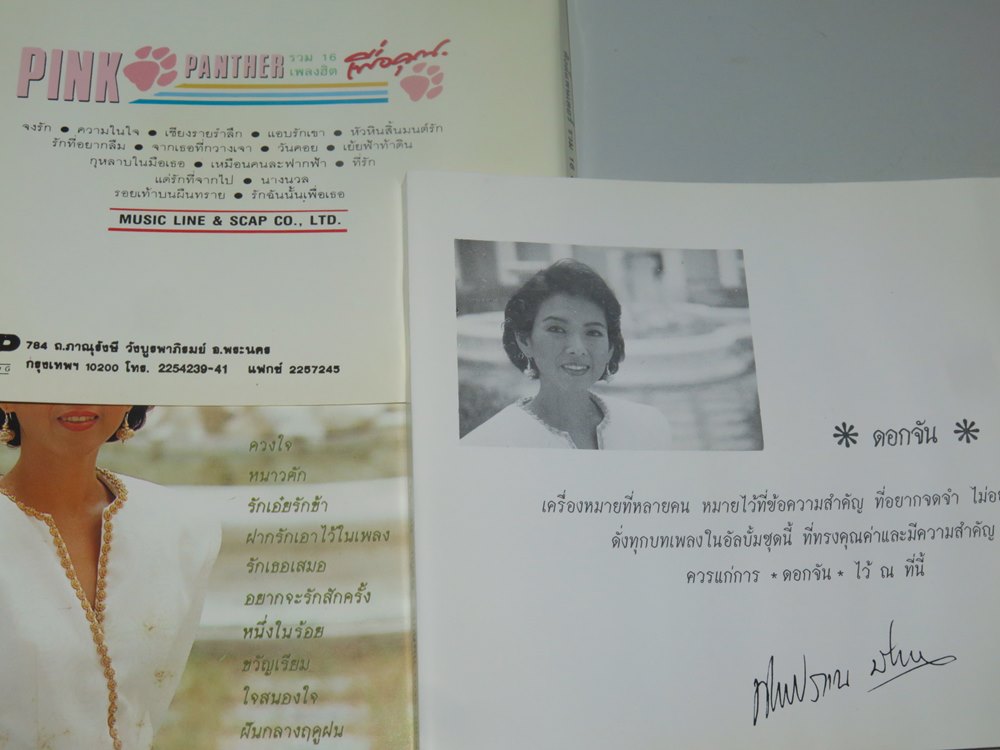 PINK PANTHER รวม 16 เพลงฮิต เพื่อคุณ
จงรัก ● ความในใจ ● เชียงรายรำลึก ● แอบรักเขา ● หัวหินสิ้นมนต์รัก
รักที่อยากลืม ● จากเธอที่กวางเจา ● วันคอย ● เย้ยฟ้าท้าดิน
กุหลาบในมือเธอ ● เหมือนคนละฟากฟ้า ● ที่รัก
แด่รักที่จากไป ● นางนวล
รอยเท้าบนผืนทราย ● รักฉันนั้นเพื่อเธอ
MUSIC LINE & SCAP CO., LTD.
784 ถ.ภาณุรังษี วังบูรพาภิรมย์ อ.พระนคร
กรุงเทพฯ 10200 โทร. 2254239-41 แฟกซ์ 2257245
ดวงใจ
หนาวตัก
รักเอ๋ยรักข้า
ฝากรักเอาไว้ในเพลง
รักเธอเสมอ
อยากจะรักสักครั้ง
หนึ่งในร้อย
ขวัญเรียม
ใจสนองใจ
ฝันกลางฤดูฝน
* ดอกจัน *
เครื่องหมายที่หลายคน หมายไว้ที่ข้อความสำคัญ ที่อยากจดจำ
ดั่งทุกบทเพลงในอัลบั้มชุดนี้ ที่ทรงคุณค่าและมีความสำคัญ
ควรแก่การ * ดอกจัน * ไว้ ณ ที่นี้